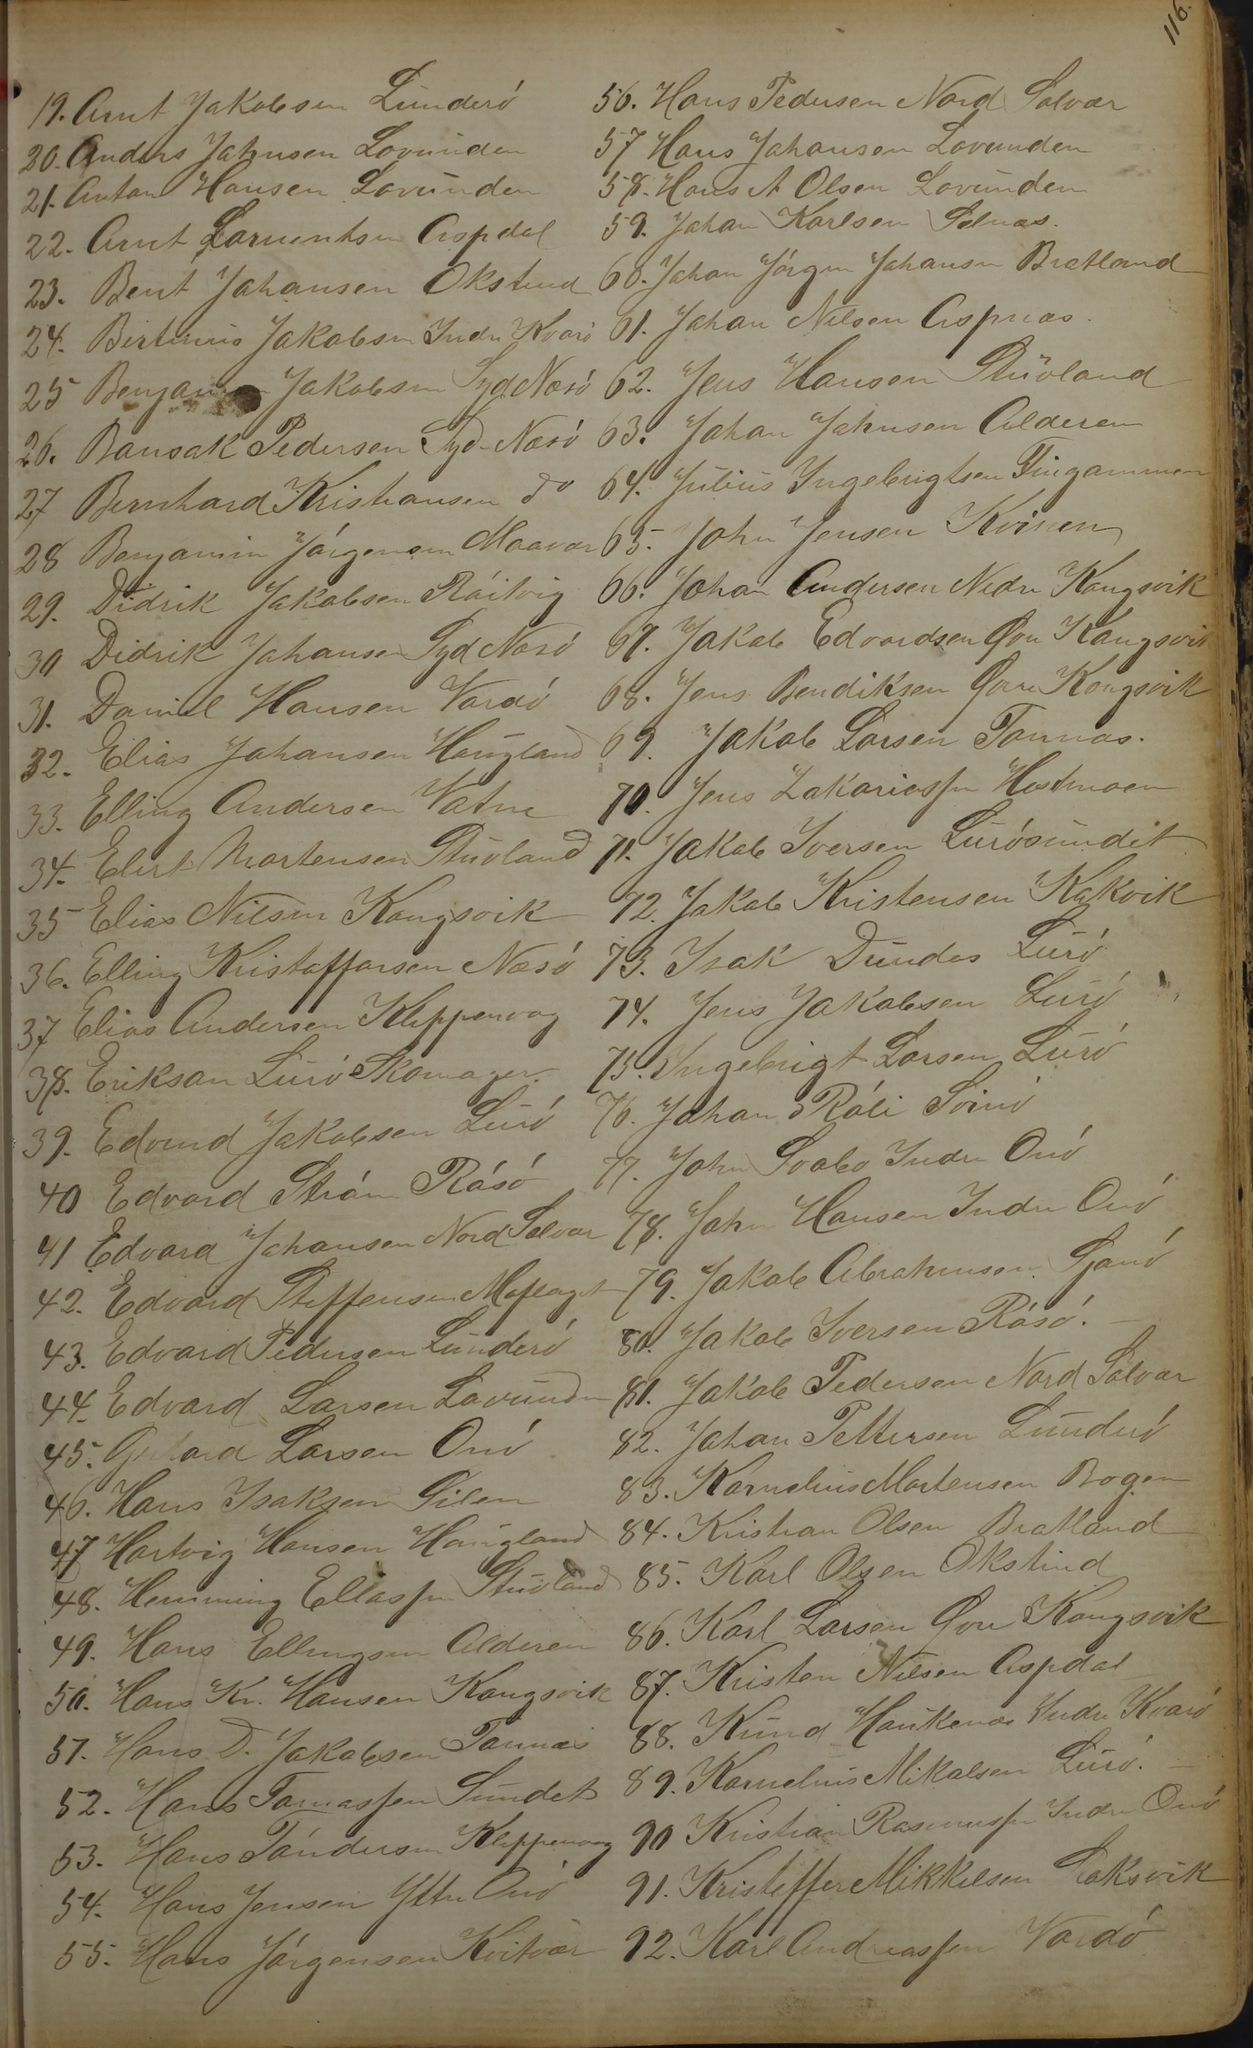 116.
19. Arnt Jakobsen Lunderó
20. Anders Jahnsen Lovunden
21. Anton Hansen Lovunden
22. Arnt Lorentsen Aspdal
23. Bent Johansen Okstind
24. Bertinus Jakobsen Indre Kvaró
25 Benjamin Jakobsen Syd Nesó
26. Bansak Pedersen Syd-Nesó
27 Bernhard Kristiansen do
28 Benjamin Jórgensen Maavær
29. Didrik Jakobsen
30 Didrik Johansen Syd Nesó
31. Daniel Hansen Vardó
32. Elias Johansen Haugland
33. Elling Andersen Vatne
34. Elert Mortensen Stuvland
35 Elias Nilsen Kongsvik
36. Elling Kristoffersen Nesó
37 Elias Andersen Kleppevag
38. Erikson Luró Skomager
39. Edvind Jakobsen Luró
40 Edvard Stróm Rásó
41 Edvard Johansen Nord Solvær
42. Edvard Steffensen
43. Edvard Pedersen Lunderó
44. Edvard Larsen Lovunden
45. Larsen Onó
46. Hans Isaksen Silen
47 Hartvig Hansen Haugland
48. Hemming Eliassen Stuvland
49. Hans Ellingsen Alderen
50. Hans Kr. Hansen Kongsvik
51. Hans D. Jakobsen Tonnes
52. Hans Tomassen Sundet
53. Hans Tóndersen Kleppevag
54. Hans Jensen Yttre Onó
55. Hans Jórgensen Kvitvær
56. Hans Pedersen Nord Solvær
57 Hans Johansen Lovunden
58. Hans A Olsen Lovunden
59. Johan Karlsen Selnæs.
60. Johan Jórgen Johansen Bratland
61. Johan Nilsen Aspnæs.
62. Jens Hansen Stuvland
63. Johan Jahnsen Alderen
64. Julius Ingebrigtsen Fingammen
65. John Jensen Kvinen
66. Johan Andersen Nedre Kongsvik
67. Jakob Edvardsen Øvre Kongsvik
68. Jens Bendiksen Øvre Kongsvik
69. Jakob Larsen Tonnæs.
70. Jens Zakariassen Hestmoen
71. Jakob Iversen Lurósundet
72. Jakob Kristensen Kakvik
73. Isak Dundas Luró
74. Jens Jakobsen Luró
75. Ingebrigt Larsen Luró
76. Johan Róli Svinó
77. John Svabo Indre Onó
78. John Hansen Indre Onó
79. Jakob Abrahmsen Sjonó
80. Jakob Iversen Rásó.
81. Jakob Pedersen Nord Solvær
82. Johan Pettersen Lunderó
83. Kornelius Mortensen Bogen
84. Kristian Olsen Bratland
85. Karl Olsen Okstind
86. Karl Larsen Øvre Kongsvik
87. Kristen Nilsen Aspdal
88. Knud Haukenæs Indre Kvaró
89. Kornelius Mikalsen Luró.
90 Kristian Rasmussen Indre Onó
91. Kristoffer Mikkelsen Laksvik
92. Karl Andreassen Vardó